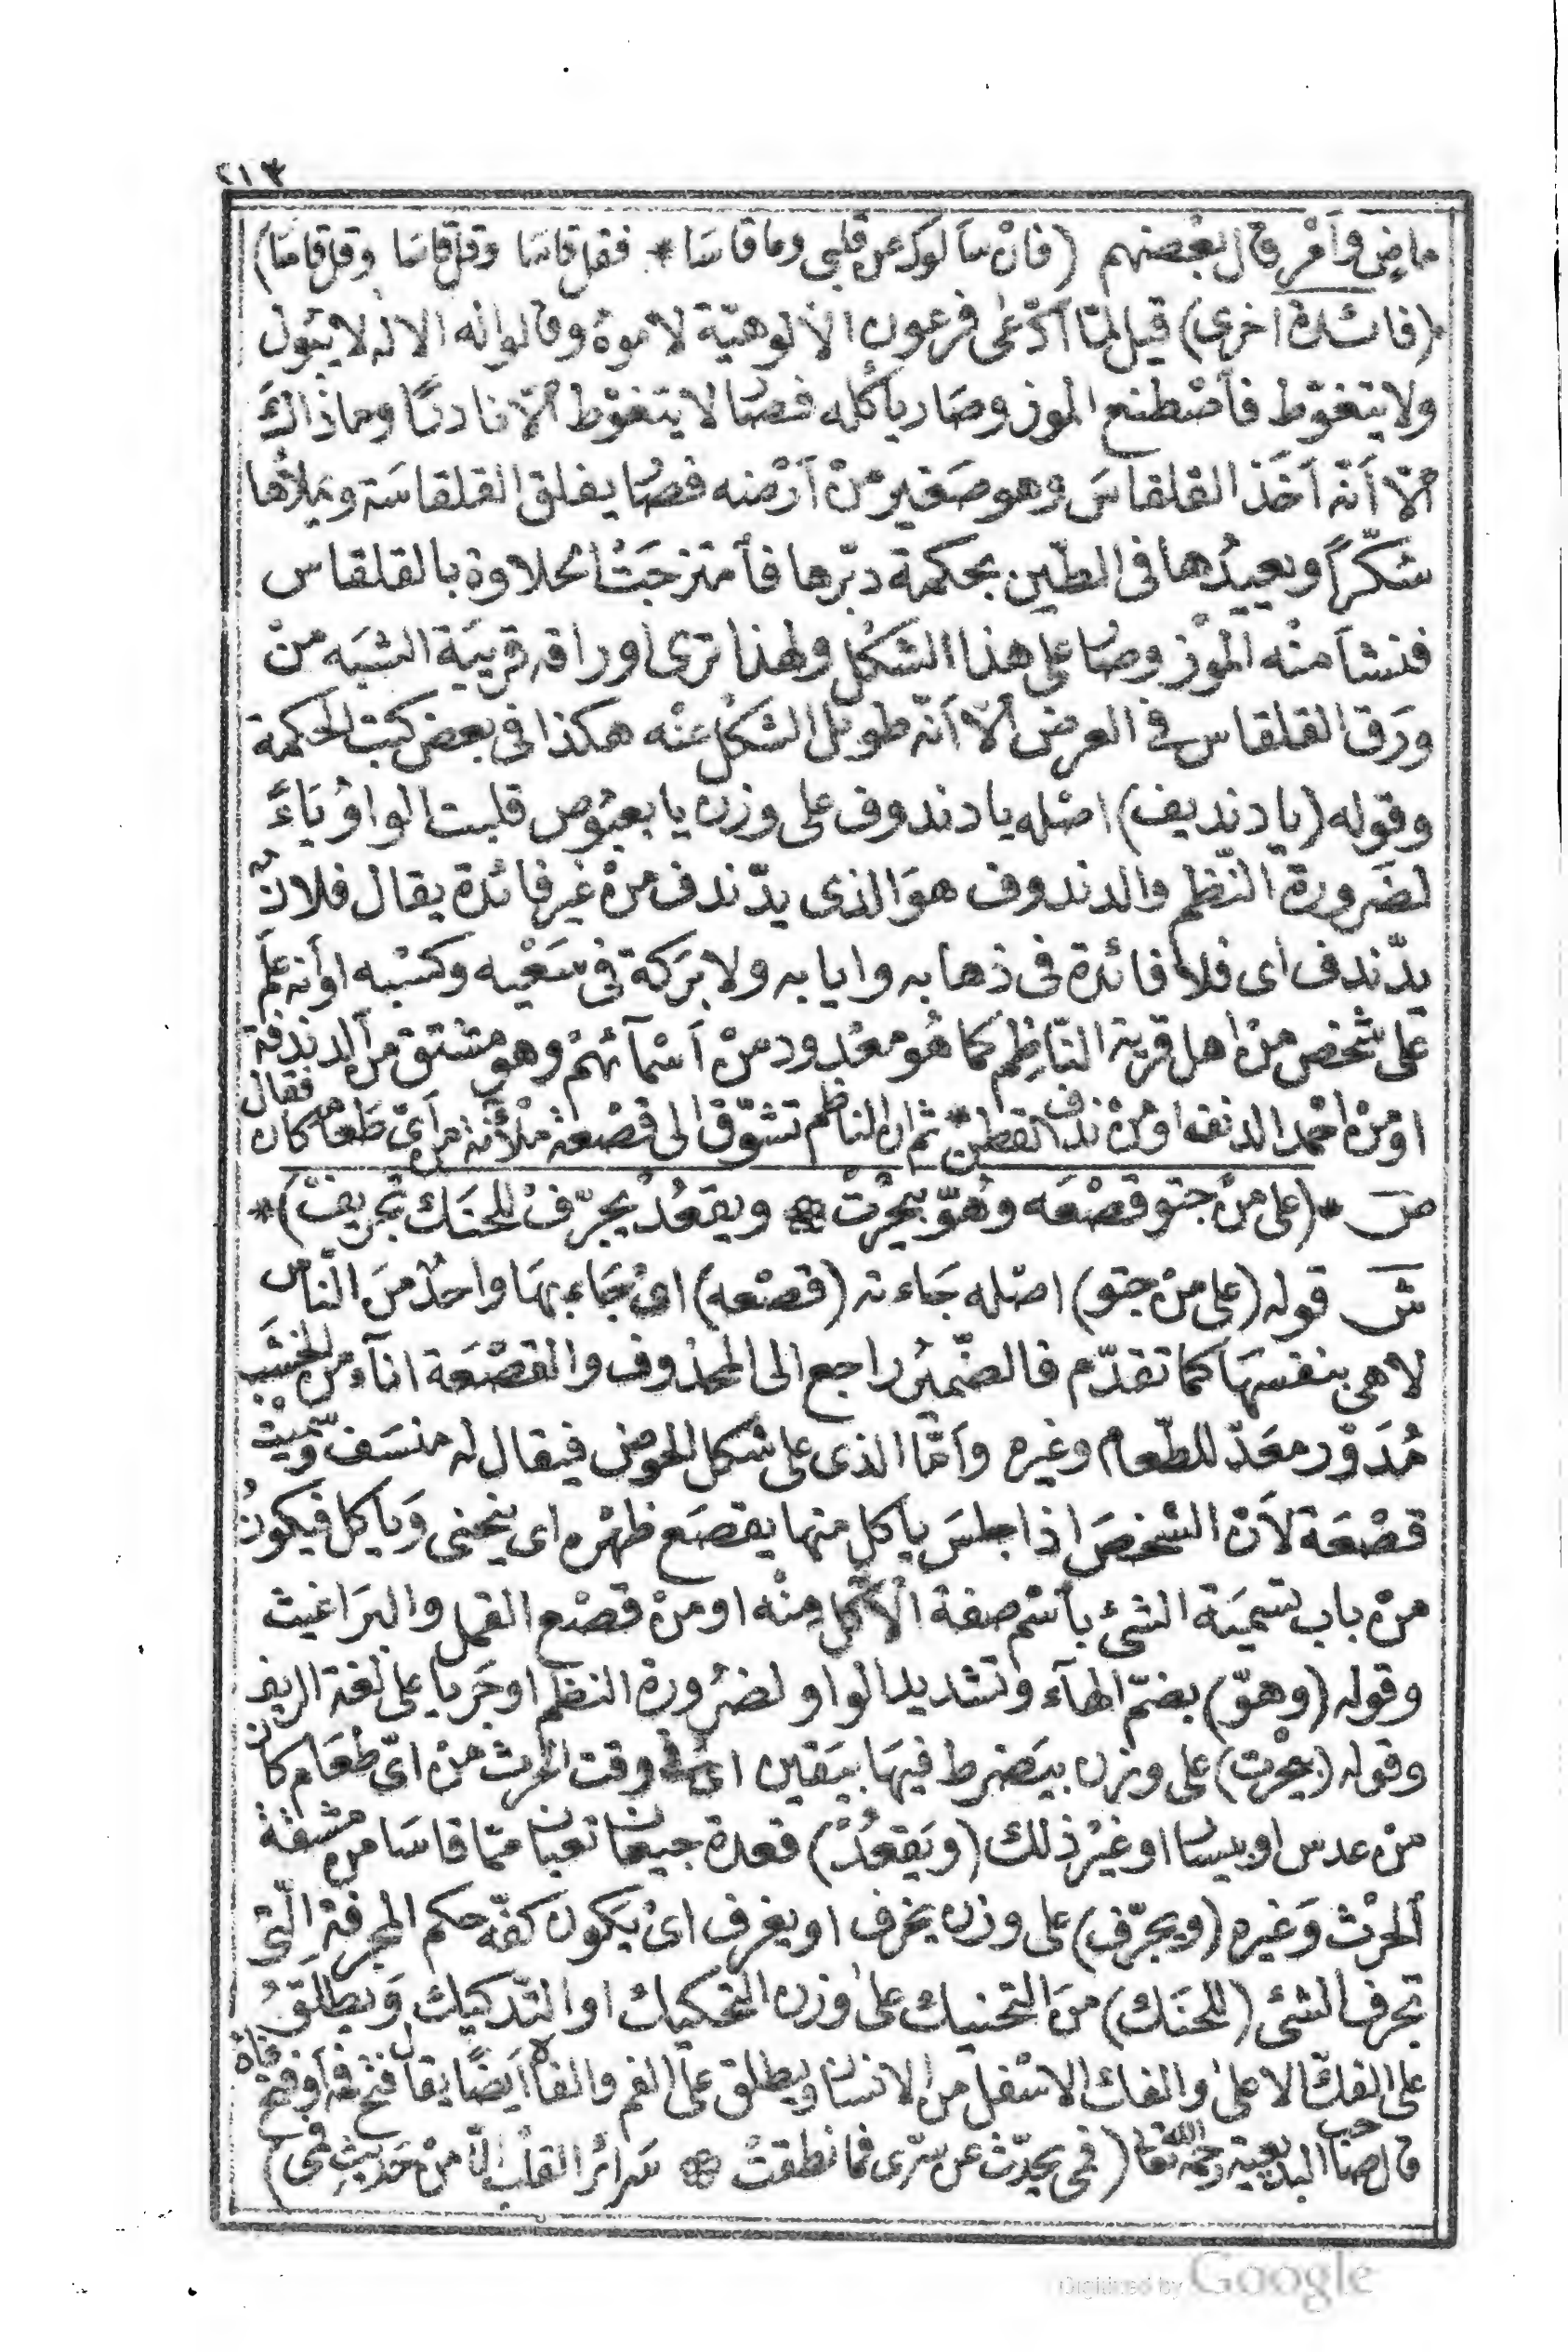 ٢١٣
ماضٍ وأمر قال بعضهم (فان سألوك عن قلبى وما قاسَا * فقل قاسَا وقل قاسَا وقل قاسَا)
(فائدة اخرى) قيل لمّا أدّعى فرعون الألوهيّة لاموهُ وقالوا له الاله لا يبول
ولا يتغوّط فأصْطنع الموز وصَار يأكله فصَار لا يتغوّط اِلّا نادرًا وماذاك
اِلّا أنّه اَخَذ القلقاسَ وهو صَغير منْ أرْضه فصَار يفلق القلقاسَة ويملاُها
سُكّراً ويعيدُها فى الطّين بحكمة دبّرها فأمتزجَتْ الحلاوة بالقلقاس
فنشأ منْه الموْز وصَار على هذا الشكل ولهذا ترى اوراقه قريبَة الشبَه منْ
ورَق القلقاس فى العرض اِلّا اَنّه طويل الشكل عنْه هكذا فى بعض كتب الحكمة
وقوله (يا دنديف) اصْله يا دندوف على وزن يا بعبُوص قلبت الواوُ يَاءً
لضَرورة النّظم والدندوف هوَ الذى يدّندف منْ غير فائدة يقال فلانٌ
يدّندف اى فلا فائدة فى ذهابه وايابه ولا برَكة فى سَعْيه وكسْبه او أنه علَم
على شخص منْ اهل قرية النّاظِم كما هُو معْدود منْ أسْمائهمْ وهو مشتق من الدندفة
او منْ احْمد الدنف او منْ ندْف القطن * ثم ان الناظم تشوّق الى قصْعة ملْأنة من أىّ طَعام كان فقال
صَ * (على منْ جتو قصْعَه وهُوّ بيحْرت ۞ ويقعُدْ يجرّفْ للحنَك تجريفْ) *
شَ قوله (على منْ جتو) اصْله جَاءته (قصْعه) اىْ جَاء بهَا واحدٌ منَ النّاس
لا هى بنفسهَا كما تقدّم فالضّميرُ راجع الى المحذوف والقصْعَة انآء من الخشَب
مُدَوّر معَدّ للطّعام وغيره وأمّا الذى على شكل الحوض فيقال له منسَف وسمّيتْ
قصْعَة لأنّ الشخصَ اذا جلسَ ياكل منها يقصَع ظهْره اى ينحنى وَياكل فيكونُ
منْ باب تسميَة الشئ بأسْم صفة الآكل منْه او منْ قصْع القمل والبرَاغيث
وقوله (وهوّ) بضمّ الهآء وتشديد الواو لضرُورة النظم او جَريا على لغة الريف
وقوله (بيحْرت) على وزن بيَضرط فيهَا بيَقين اى فى وقت الحرث منْ اىّ طعَام كان
منْ عدس او بيسار او غيْر ذلك (ويَقعُدْ) قعدة جيعان تعبان ممّا قاسَا من مشقة
ألحرْث وَغيره (ويجرّف) على وزن يخرف او يغرف اىْ يَكون كفّه حكم المجرفة الّتى
تجرف الشئ (للحنَك) منَ التحنيك على وزن التحكيك او التّدكيك وَيطلَقُ
على الفكّ الاعلى والفك الاسْفل من الانسان ويطلق على الفم والفاه أيضًا يقال فتح فمه أو فتح فاه
قال صَاحب البديعية رحمه الله تعا (فمى يحدّث عن سرّى فما نطقتْ ۞ سَرائر القلب الّا منْ حَديثِ فمى)
Digitized by Google